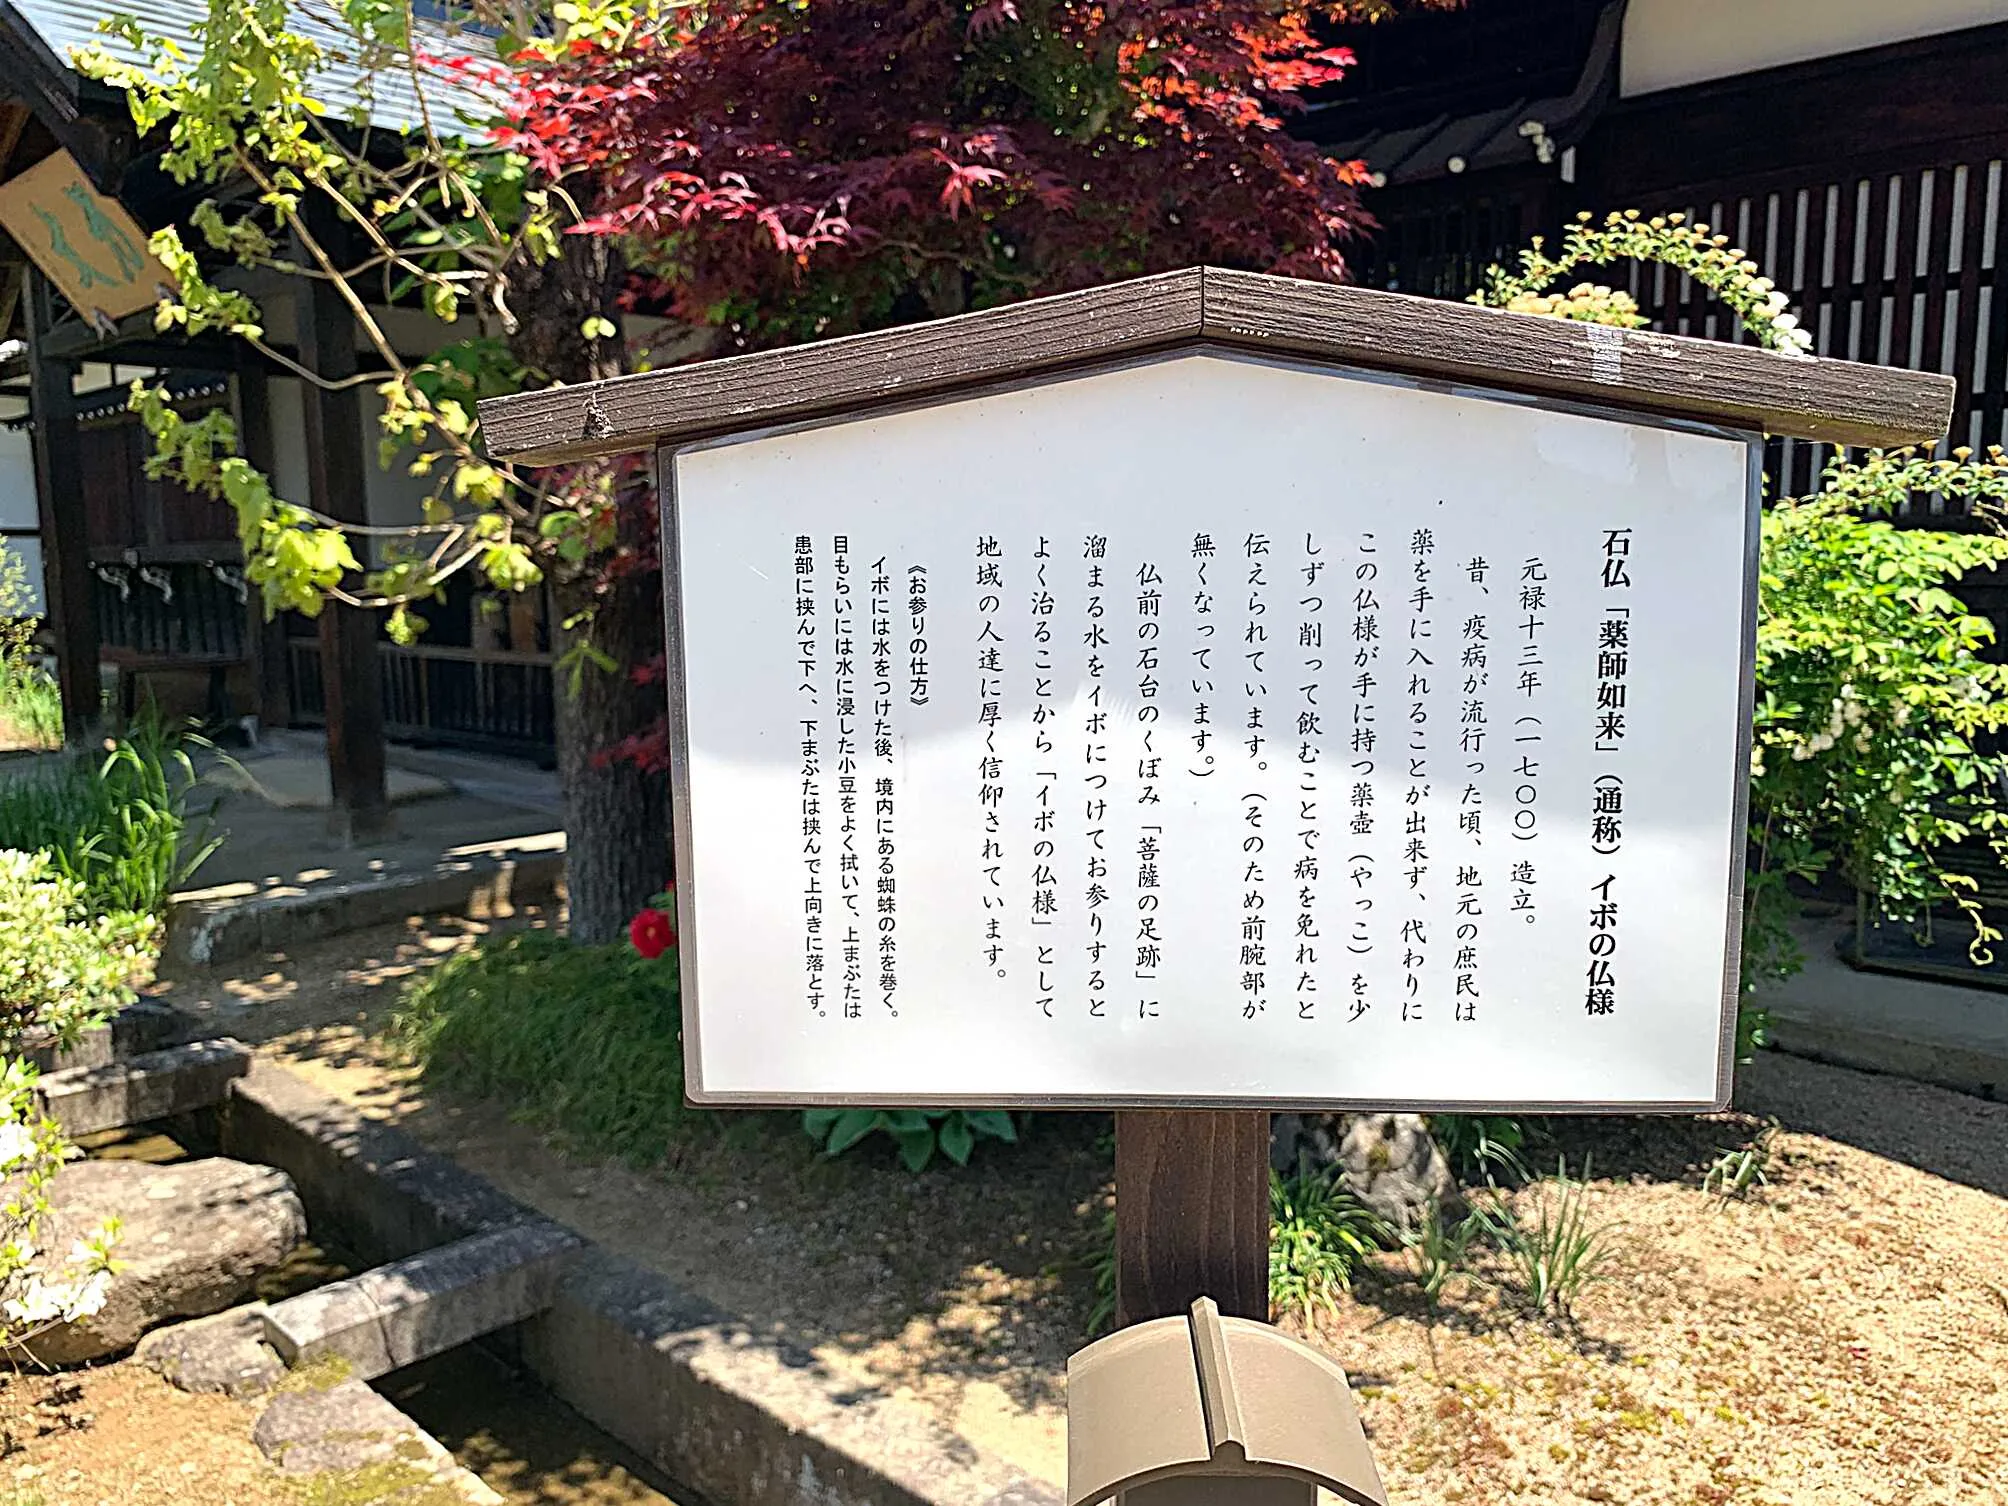 石仏「薬師如来」（通称）イボの仏様
元禄十三年（一七〇〇）造立。
昔、疫病が流行った頃、地元の庶民は
薬を手に入れることが出来ず、代わりに
この仏様が手に持つ薬壺（やっこ）を少
しずつ削って飲むことで病を免れたと
伝えられています。（そのため前腕部が
無くなっています。）
仏前の石台のくぼみ「菩薩の足跡」に
溜まる水をイボにつけてお参りすると
よく治ることから「イボの仏様」として
地域の人達に厚く信仰されています。
《お参りの仕方》
イボには水をつけた後、境内にある蜘蛛の糸を巻く。
目もらいには水に浸した小豆をよく拭いて、上まぶたは
患部に挟んで下へ、下まぶたは挟んで上向きに落とす。